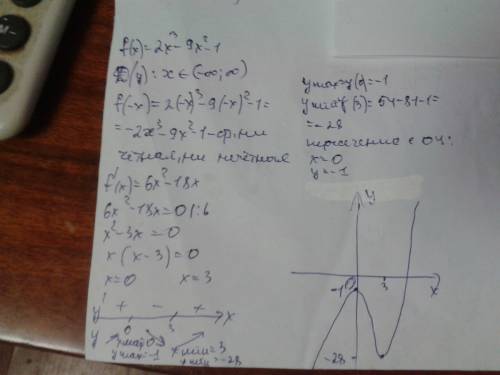 f(x)=2x³-9x²-1
D(y): x∈(-∞;∞)
f(-x)=2(-x)³-9(-x)²-1=
=-2x³-9x²-1-ф, ни
чётная, ни нечётная
f'(x)=6x²-18x
6x²-18x=0 |:6
x²-3x=0
x(x-3)=0
x=0 x=3
y' + - + x
y 0 3
xmax=0 xmin=3
ymax=-1 ymin=-28
ymax=y(0)=-1
ymin=y(3)=54-81-1=
=-28
пересечение с ОУ:
x=0
y=-1
y
0
-1
3
x
-28